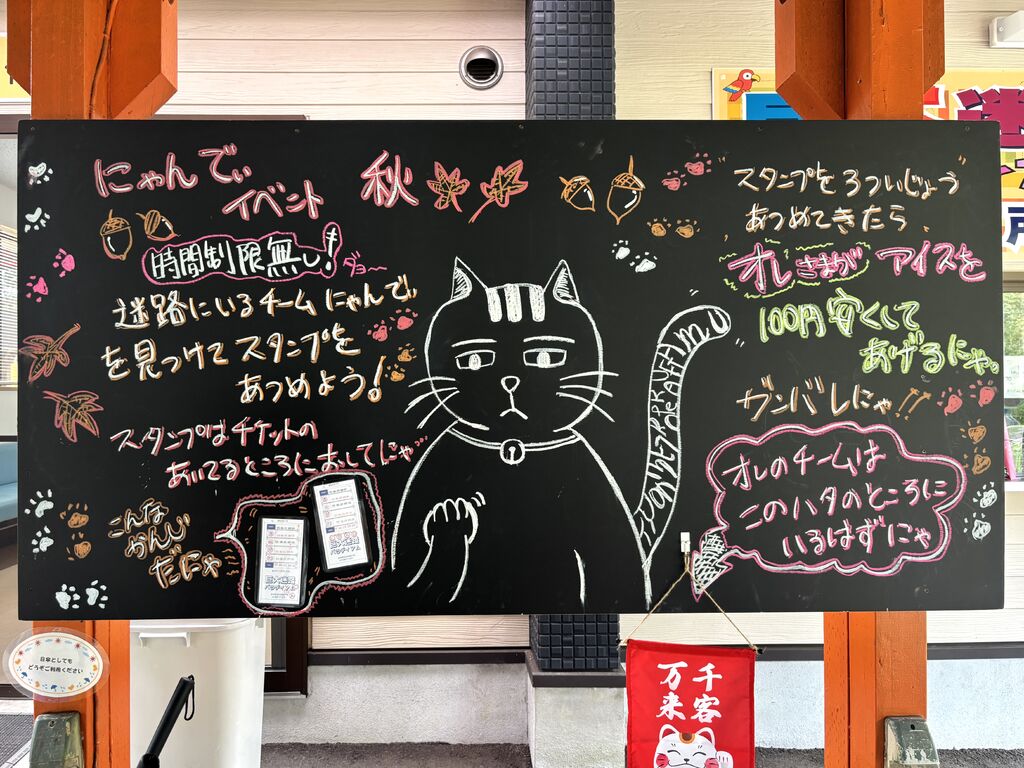 にゃんでぃ
イベント
秋
時間制限無し!
ダョ〜
迷路にいるチームにゃんでぃ
を見つけてスタンプを
あつめよう!
スタンプはチケットの
あいてるところにおしてにゃ
こんな
かんじ
だにゃ
スタンプを3ついじょう
あつめてきたら
オレさまが アイスを
100円安くして
あげるにゃ。
ガンバレにゃ!!
オレのチームは
このハタのところに
いるはずにゃ
巨大迷路
パラディアム
日傘としても
どうぞご利用ください
千客
万来